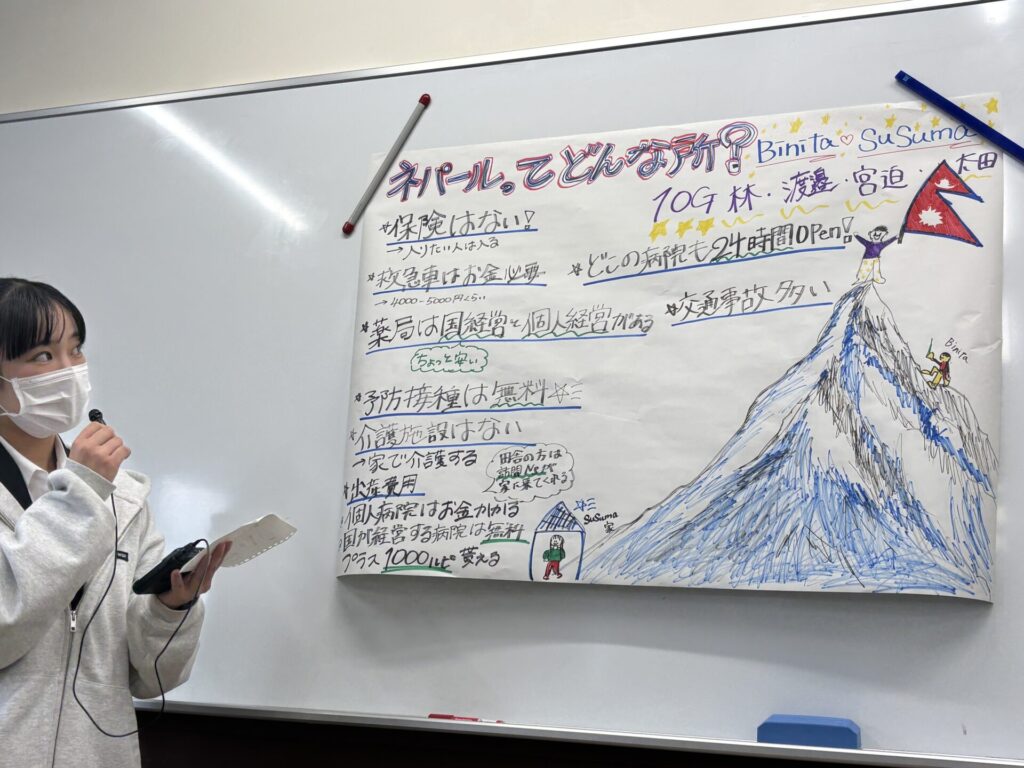 ネパールってどんな所?
Binita♡SuSuma
10G 林・渡邉・宮迫・太田
*保険はない!
→入りたい人は入る
*救急車はお金必要
→4000-5000円くらい
*薬局は国経営と個人経営がある
ちょっと安い
*予防接種は無料
*介護施設はない
→家で介護する
田舎の方は
訪問Nsが
家に来てくれる
*出産費用
個人病院はお金かかる
国が経営する病院は無料
プラス1000ルピ貰える
*どこの病院も24時間OPen!
*交通事故多い
Binita
SuSuma
家